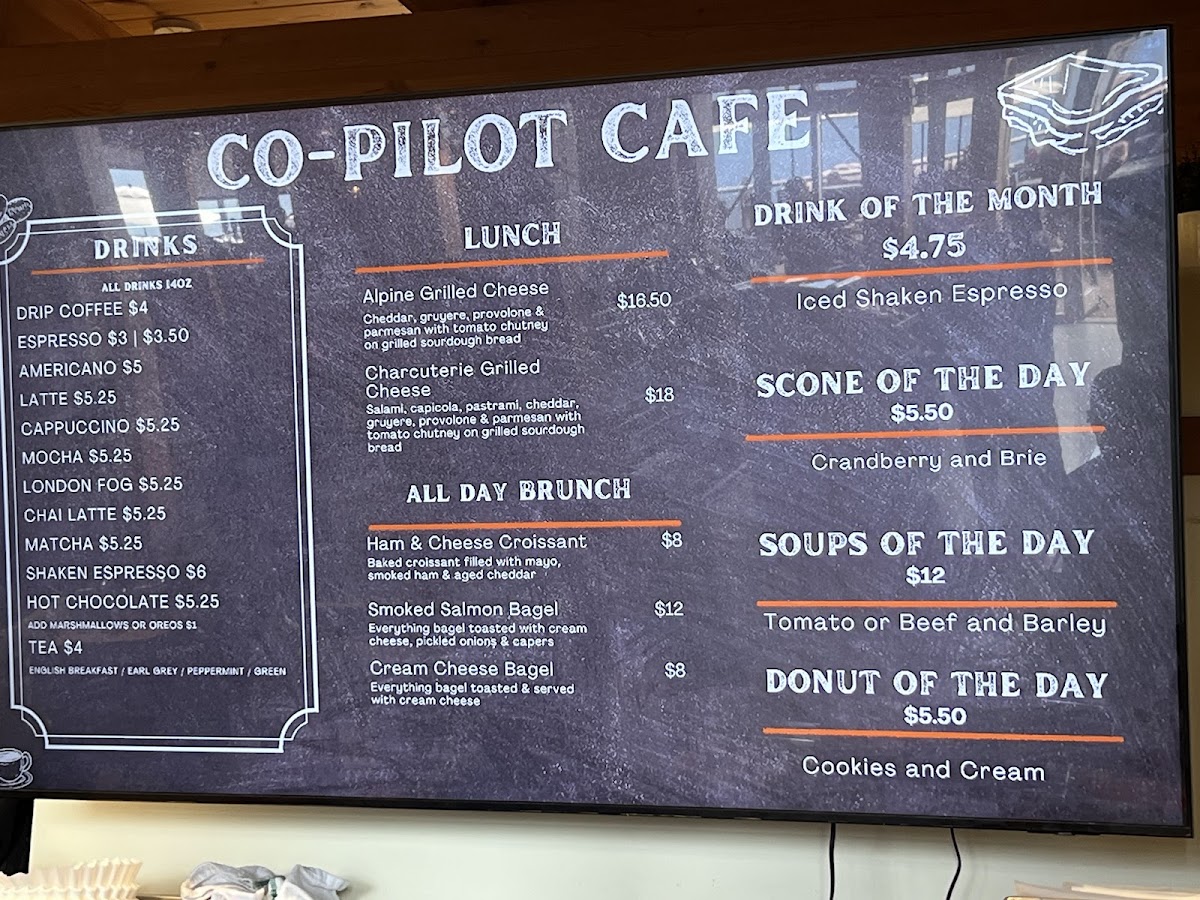 CO-PILOT CAFE
DRINKS
ALL DRINKS 14OZ
DRIP COFFEE $4
ESPRESSO $3 | $3.50
AMERICANO $5
LATTE $5.25
CAPPUCCINO $5.25
MOCHA $5.25
LONDON FOG $5.25
CHAI LATTE $5.25
MATCHA $5.25
SHAKEN ESPRESSO $6
HOT CHOCOLATE $5.25
ADD MARSHMALLOWS OR OREOS $1
TEA $4
ENGLISH BREAKFAST / EARL GREY / PEPPERMINT / GREEN
LUNCH
Alpine Grilled Cheese $16.50
Cheddar, gruyere, provolone &
parmesan with tomato chutney
on grilled sourdough bread
Charcuterie Grilled
Cheese $18
Salami, capicola, pastrami, cheddar,
gruyere, provolone & parmesan with
tomato chutney on grilled sourdough
bread
ALL DAY BRUNCH
Ham & Cheese Croissant $8
Baked croissant filled with mayo,
smoked ham & aged cheddar
Smoked Salmon Bagel $12
Everything bagel toasted with cream
cheese, pickled onions & capers
Cream Cheese Bagel $8
Everything bagel toasted & served
with cream cheese
DRINK OF THE MONTH
$4.75
Iced Shaken Espresso
SCONE OF THE DAY
$5.50
Crandberry and Brie
SOUPS OF THE DAY
$12
Tomato or Beef and Barley
DONUT OF THE DAY
$5.50
Cookies and Cream